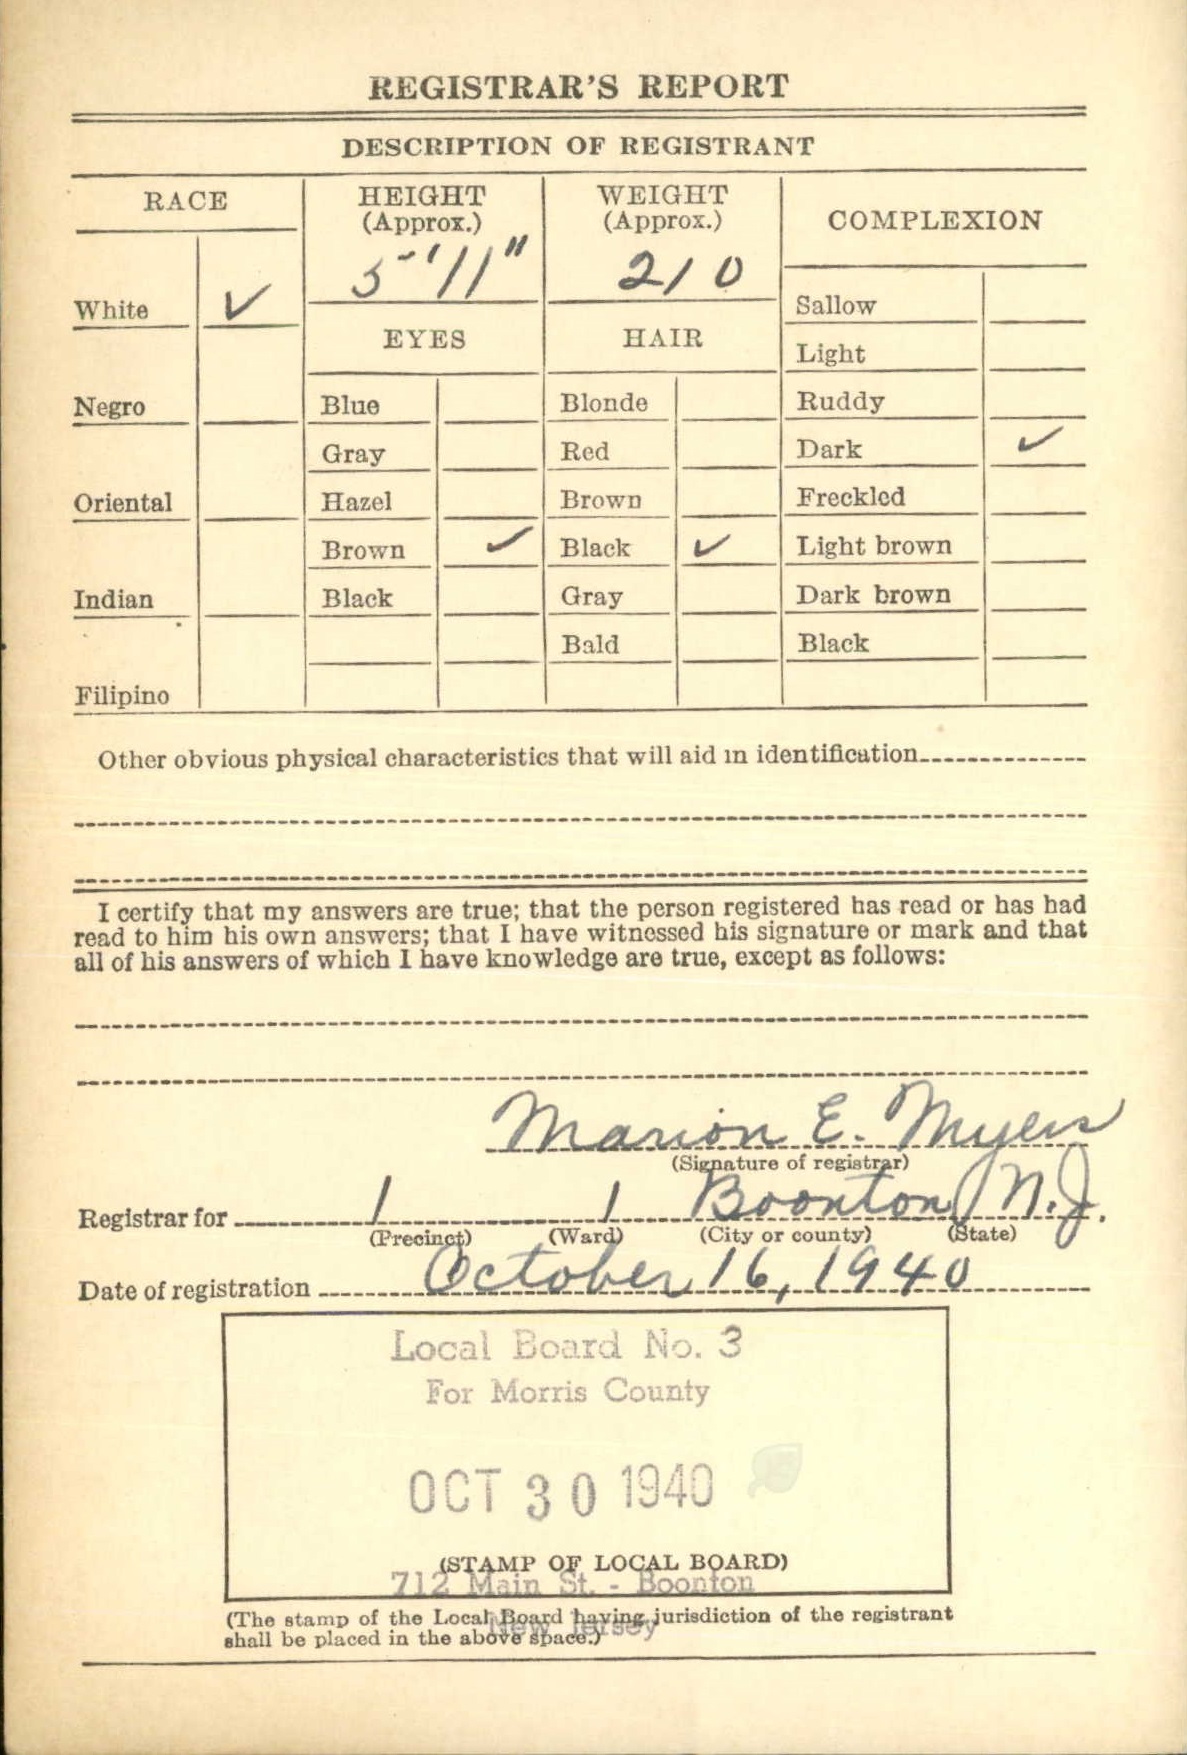 REGISTRAR'S REPORT
DESCRIPTION OF REGISTRANT
RACE
HEIGHT
(Approx.)
5' 11"
WEIGHT
(Approx.)
210
COMPLEXION
White ✓
Negro
Oriental
Indian
Filipino
EYES
Blue
Gray
Hazel
Brown ✓
Black
HAIR
Blonde
Red
Brown
Black ✓
Gray
Bald
Sallow
Light
Ruddy
Dark ✓
Freckled
Light brown
Dark brown
Black
Other obvious physical characteristics that will aid in identification
I certify that my answers are true; that the person registered has read or has had
read to him his own answers; that I have witnessed his signature or mark and that
all of his answers of which I have knowledge are true, except as follows:
Marion E. Myers
(Signature of registrar)
Registrar for 1 1 Boonton N.J.
(Precinct) (Ward) (City or county) (State)
Date of registration October 16, 1940
Local Board No. 3
For Morris County
OCT 30 1940
(STAMP OF LOCAL BOARD)
712 Main St. - Boonton
New Jersey
(The stamp of the Local Board having jurisdiction of the registrant
shall be placed in the above space.)